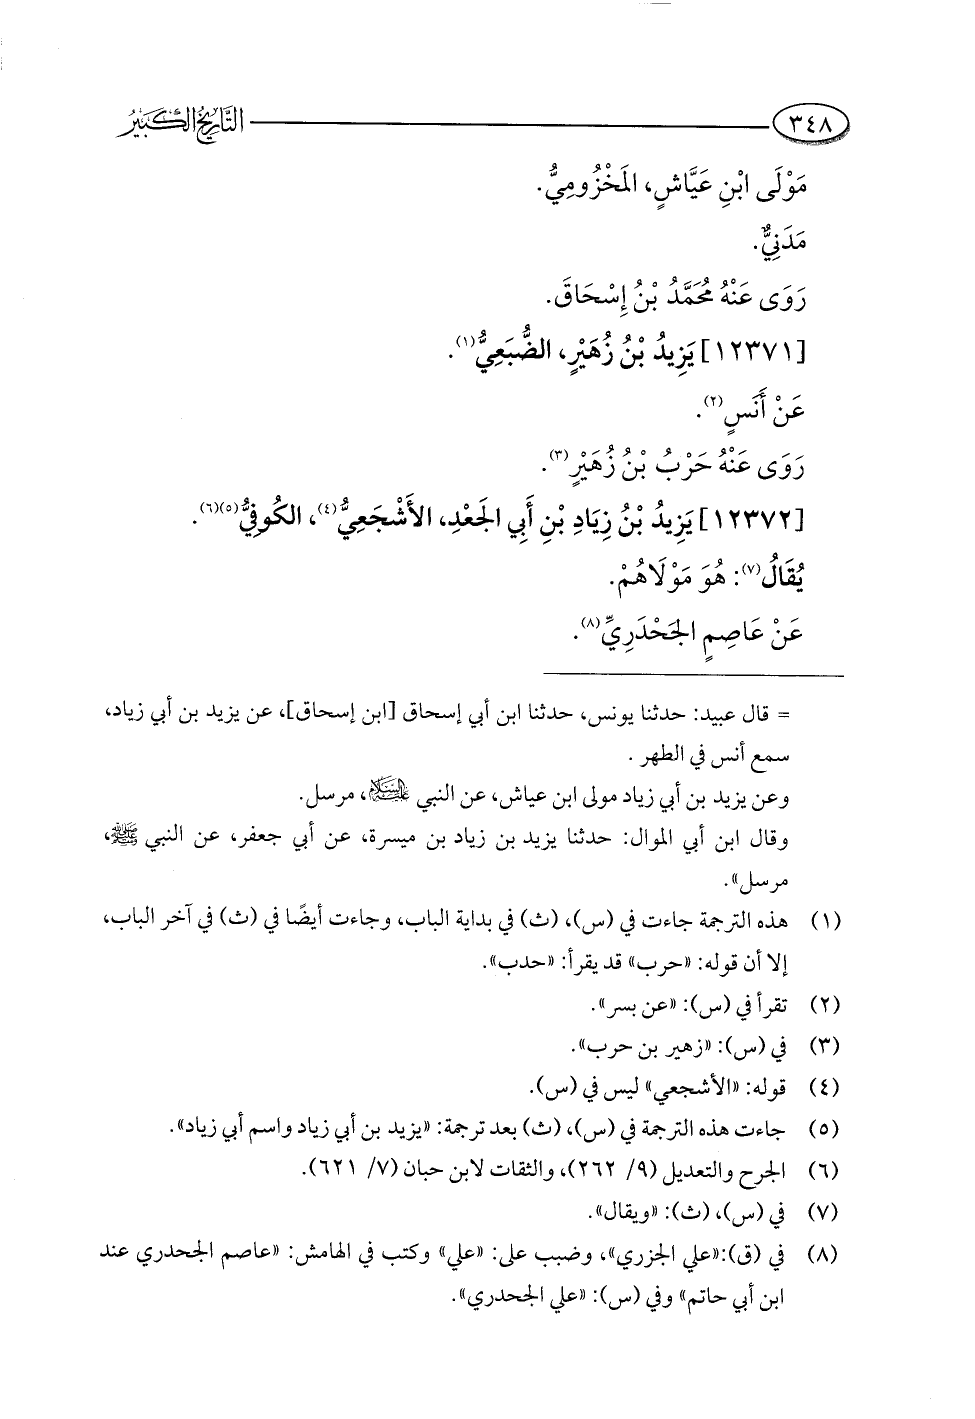 ٣٤٨ التَّارِيخُ الْكَبِيرُ
مَوْلَى ابْنِ عَيَّاشٍ، المَخْزُومِيُّ.
مَدَنِيٌّ.
رَوَى عَنْهُ مُحَمَّدُ بْنُ إِسْحَاقَ.
[١٢٣٧١] يَزِيدُ بْنُ زُهَيْرٍ، الضُّبَعِيُّ(١).
عَنْ أَنَسٍ(٢).
رَوَى عَنْهُ حَرْبُ بْنُ زُهَيْرٍ(٣).
[١٢٣٧٢] يَزِيدُ بْنُ زِيَادِ بْنِ أَبِي الجَعْدِ، الأَشْجَعِيُّ(٤)، الكُوفِيُّ(٥)(٦).
يُقَالُ(٧): هُوَ مَوْلَاهُمْ.
عَنْ عَاصِمٍ الجَحْدَرِيِّ(٨).
= قال عبيد: حدثنا يونس، حدثنا ابن أبي إسحاق [ابن إسحاق]، عن يزيد بن أبي زياد،
سمع أنس في الطهر .
وعن يزيد بن أبي زياد مولى ابن عياش، عن النبي عليه السلام، مرسل.
وقال ابن أبي الموال: حدثنا يزيد بن زياد بن ميسرة، عن أبي جعفر، عن النبي ﷺ،
مرسل».
(١) هذه الترجمة جاءت في (س)، (ث) في بداية الباب، وجاءت أيضًا في (ث) في آخر الباب،
إلا أن قوله: «حرب» قد يقرأ: «حدب».
(٢) تقرأ في (س): «عن بسر».
(٣) في (س): «زهير بن حرب».
(٤) قوله: «الأشجعي» ليس في (س).
(٥) جاءت هذه الترجمة في (س)، (ث) بعد ترجمة: «يزيد بن أبي زياد واسم أبي زياد».
(٦) الجرح والتعديل (٩/ ٢٦٢)، والثقات لابن حبان (٧/ ٦٢١).
(٧) في (س)، (ث): «ويقال».
(٨) في (ق):«علي الجزري»، وضبب على: «علي» وكتب في الهامش: «عاصم الجحدري عند
ابن أبي حاتم» وفي (س): «علي الجحدري».